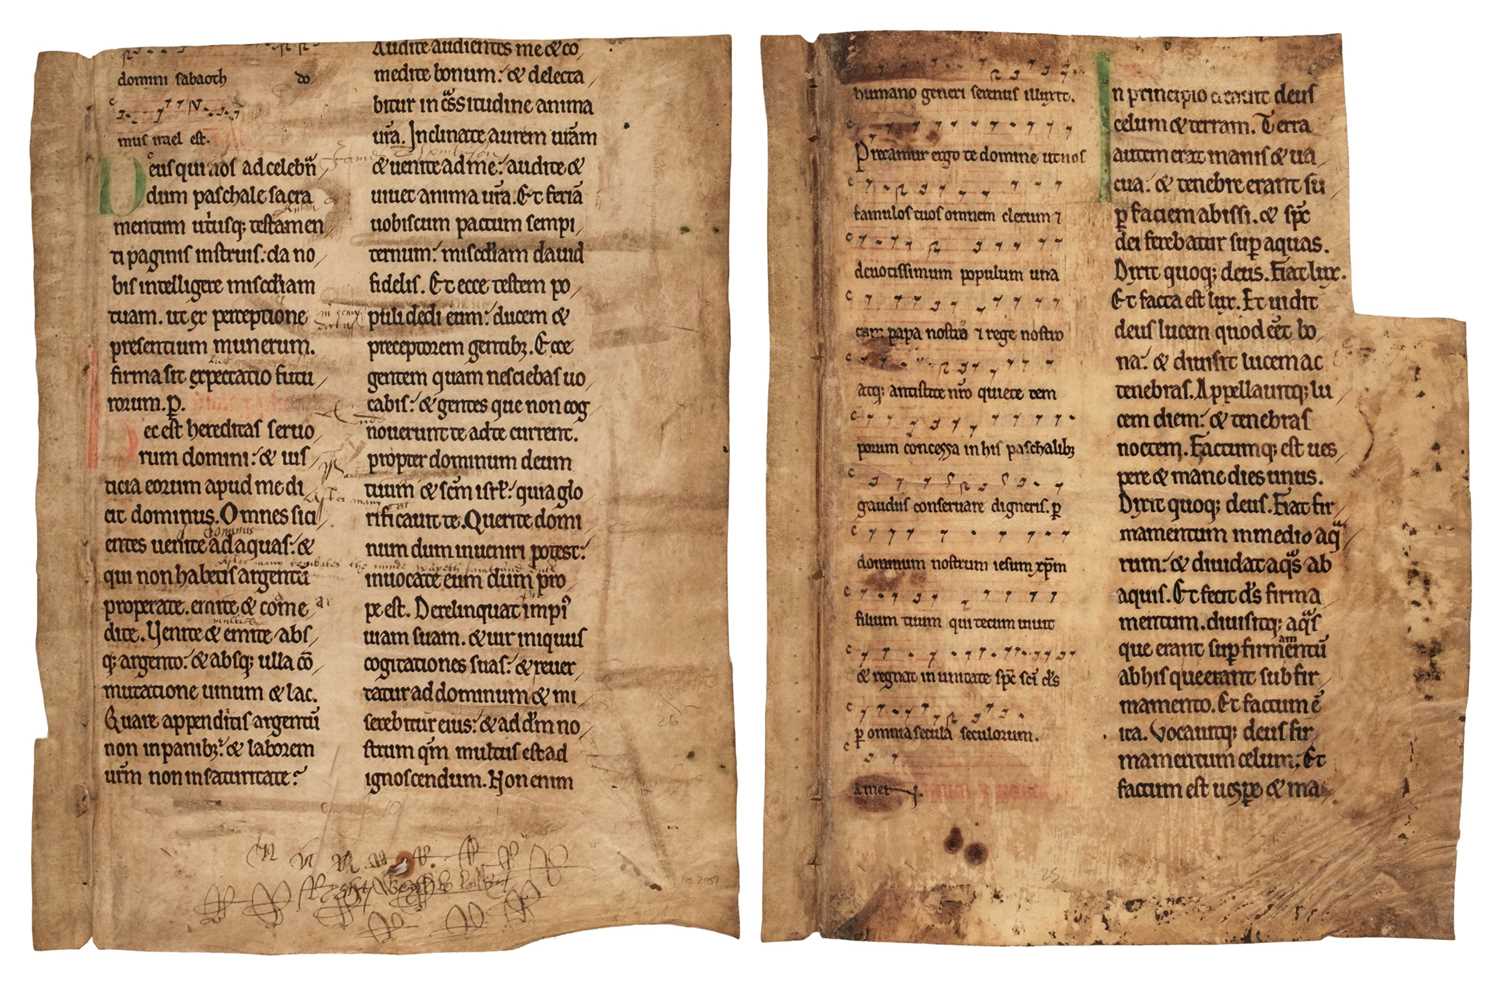 domini sabaoth do
mus israel est.
Deus qui nos ad celebrā
dum paschale sacra
mentum utriusq; testamen
ti paginis instruis: da no
bis intelligere misc̄diam
tuam. ut ex perceptione
presentium munerum.
firma sit expectatio futu
rorum. P.
Hec est hereditas seruo
rum domini: & ius
ticia eorum apud me di
cit dominus. Omnes sici
entes uenite ad aquas: &
qui non habetis argentū
properate. emite & come
dite. Uenite & emite abs
q; argento: & absq; ulla cō
mutatione uinum & lac.
Quare appenditis argentū
non in panib; & laborem
ur̄m non in saturitate?
Audite audientes me & co
medite bonum: & delecta
bitur in crassitudine anima
ur̄a. Inclinate aurem ur̄am
& uenite ad me: audite &
uiuet anima ur̄a. Et feriā
uobiscum pactum sempi
ternum: misc̄diam dauid
fidelis. Et ecce testem po
pūli dedi eum: ducem &
preceptorem gentib;. Ecce
gentem quam nesciebas uo
cabis: & gentes que non cog
nouerunt te ad te current.
propter dominum deum
tuum & sc̄m isrl̄: quia glo
rificauit te. Querite domi
num dum inueniri potest:
inuocate eum dum pro
pe est. Derelinquat impi'
uiam suam. & uir iniquus
cogitationes suas: & reuer
tatur ad dominum & mi
serebitur eius: & ad dm̄ no
strum qm̄ multus est ad
ignoscendum. Non enim
humano generi serenus illuxit.
Precamur ergo te domine ut nos
famulos tuos omnem clerum ⁊
deuotissimum populum una
cum papa nostro ⁊ rege nostro
atq; antistite nr̄o quiete tem
porum concessa in his paschalib;
gaudiis conseruare digneris. p
dominum nostrum iesum xp̄m
filium tuum qui tecum uiuit
& regnat in unitate sp̄c sc̄i ds̄
p omnia secula seculorum.
Amen
In principio creauit deus
celum & terram. Terra
autem erat inanis & ua
cua: & tenebre erant su
p faciem abissi. & sp̄c
dei ferebatur sup aquas.
Dixit quoq; deus. Fiat lux.
Et facta est lux. Et uidit
deus lucem quod eēt bo
na: & diuisit lucem ac
tenebras. Appellauitq; lu
cem diem: & tenebras
noctem. Factumq; est ues
pere & mane dies unus.
Dixit quoq; deus. Fiat fir
mamentum in medio aqua
rum: & diuidat aquas ab
aquis. Et fecit ds̄ firma
mentum. diuisitq; aquas
que erant sup firmamentū
ab his que erant sub fir
mamento. Et factum ē
ita. Vocauitq; deus fir
mamentum celum. Et
factum est uesp̄e & ma